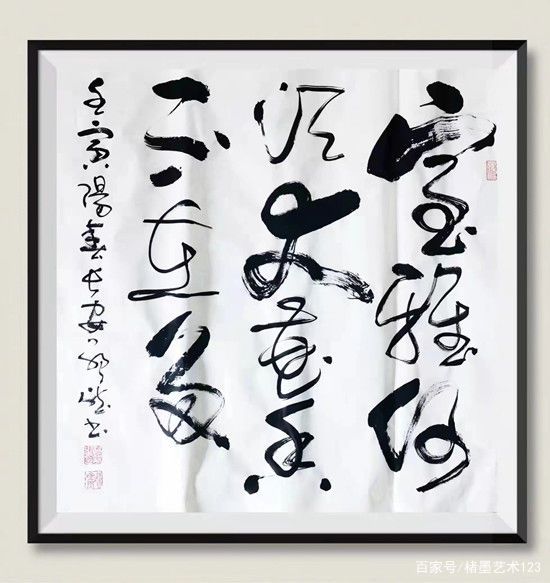 室雅何
须大花香
不在多
壬寅阳春长安
书
百家号/楮墨艺术123